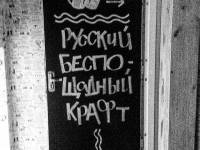 РУССКИЙ
БЕСПО-
ЩАДНЫЙ
КРАФТ